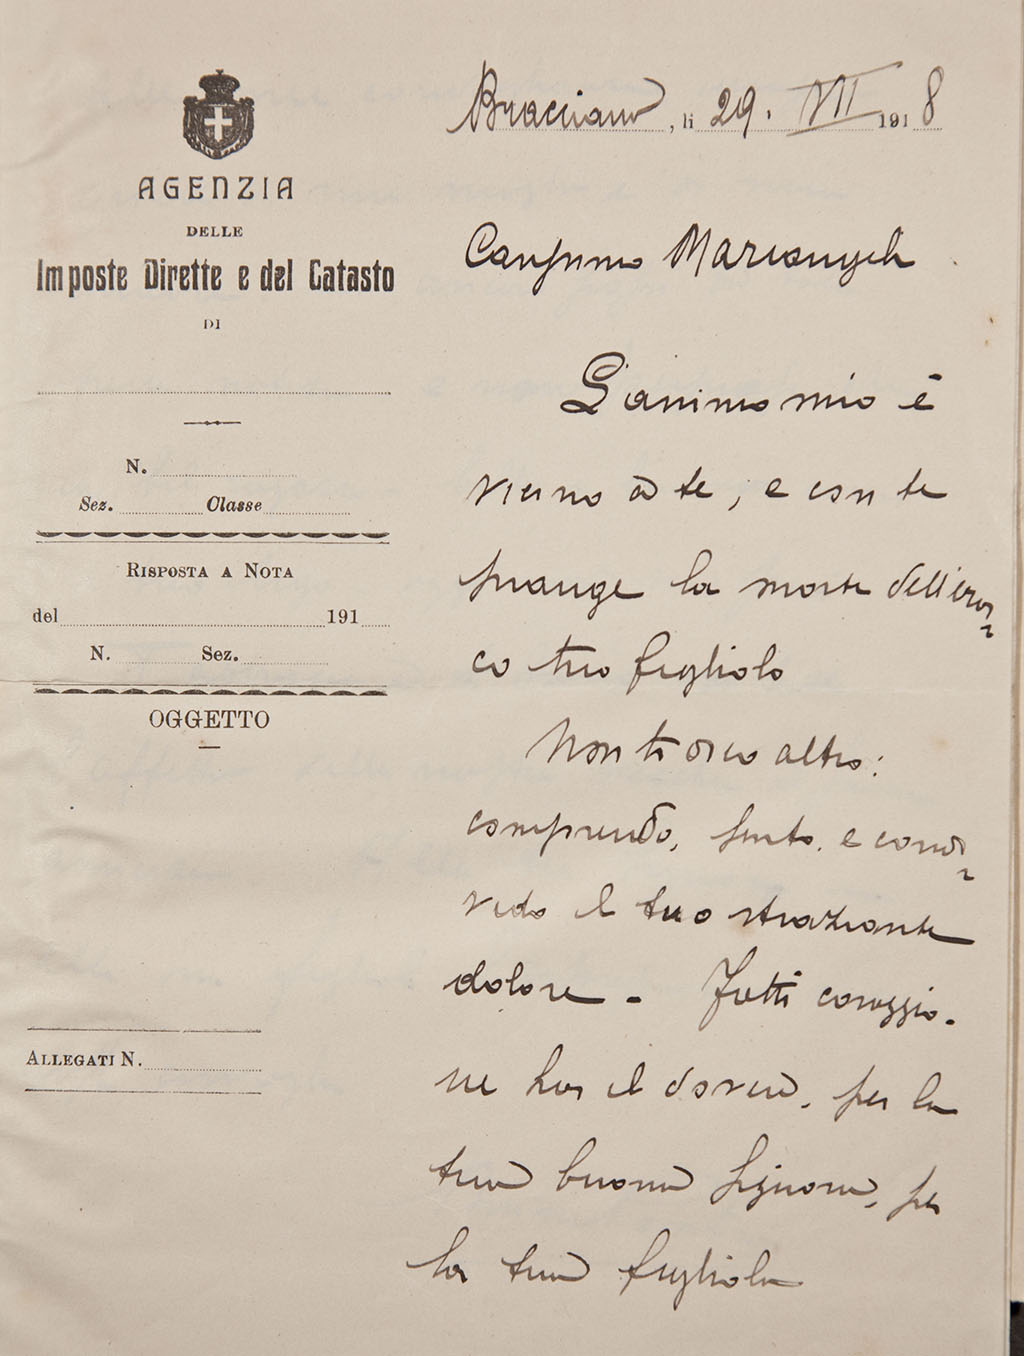 AGENZIA
DELLE
Imposte Dirette e del Catasto
DI
N.
Sez. Classe
RISPOSTA A NOTA
del 191
N. Sez.
OGGETTO
ALLEGATI N.
Bracciano, li 29. VII 1918
Carissimo Mariangeli
L'animo mio è
vicino a te, e con te
piange la morte dell'eroi=
co tuo figliolo
Non ti dico altro:
comprendo, sento, e condi=
vido il tuo straziante
dolore - Fatti coraggio.
ne hai il dovere, per la
tua buona signora, per
la tua figliola